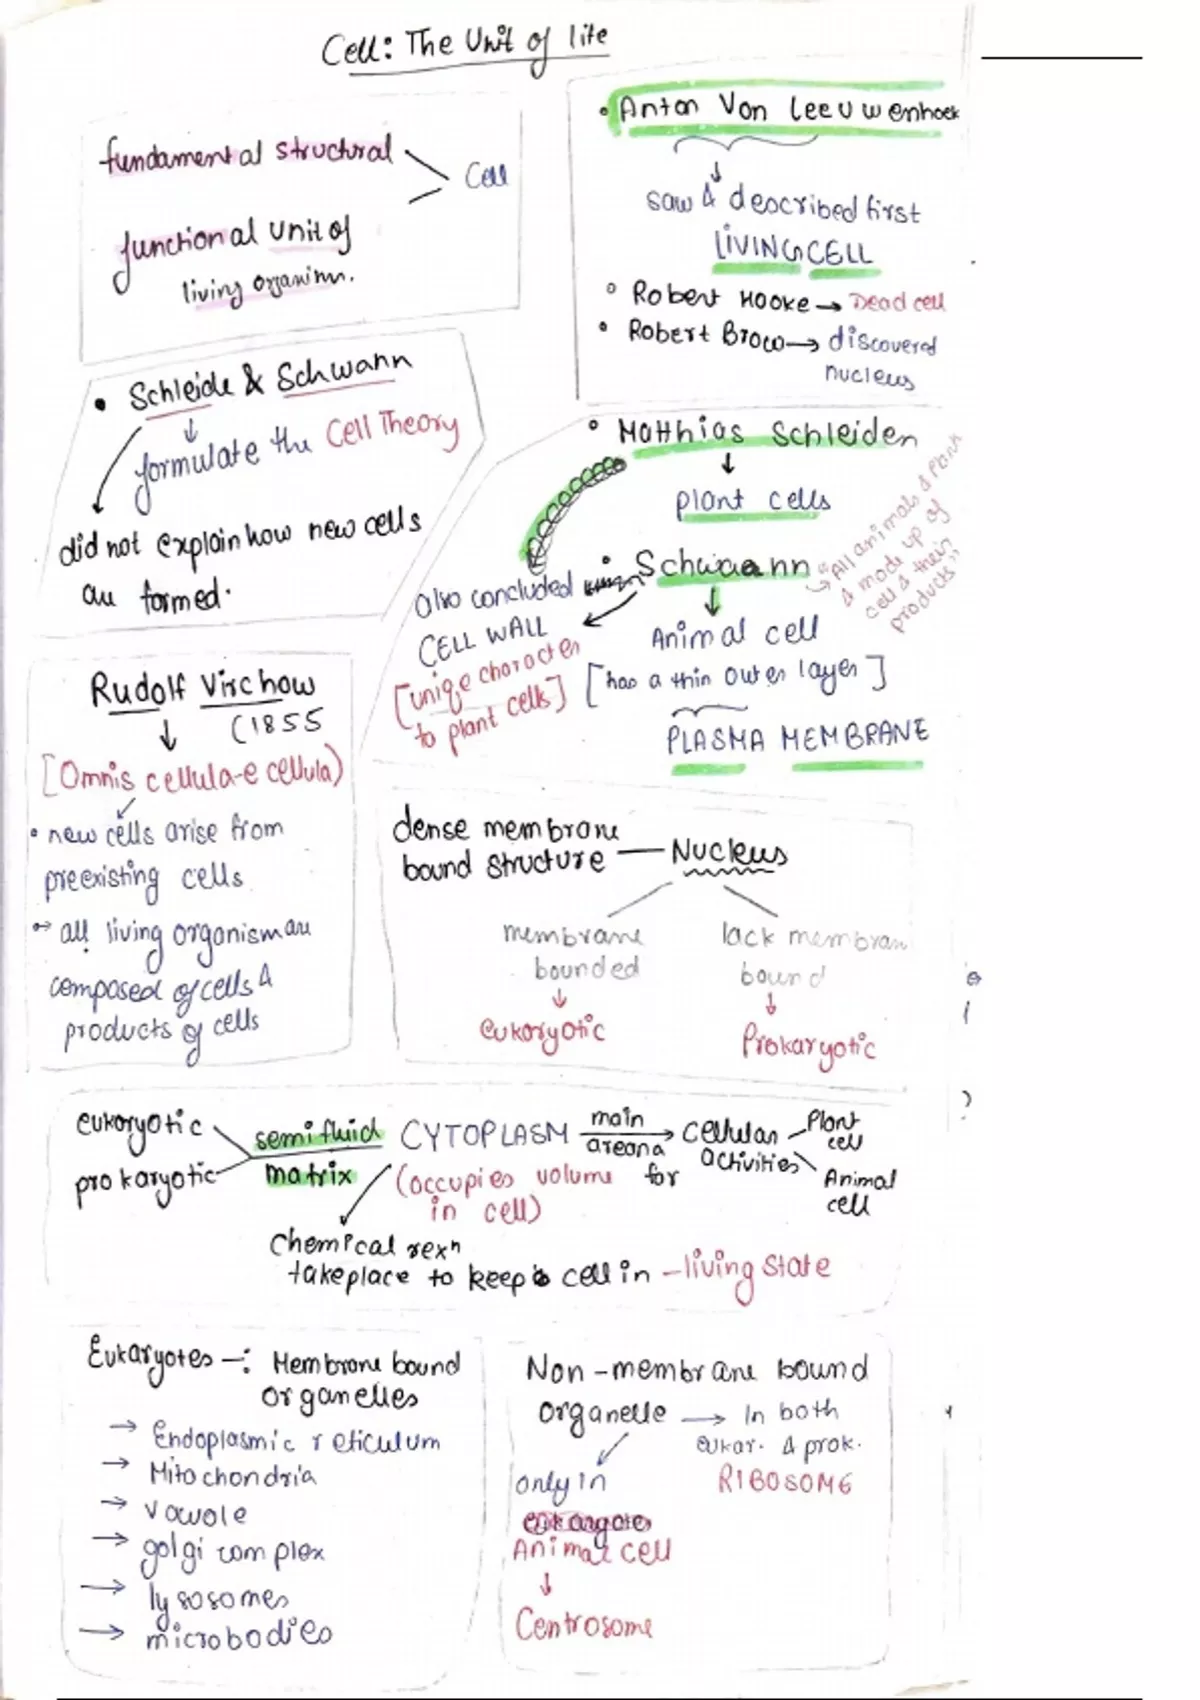 Cell: The Unit of life
fundamental structural
Cell
functional unit of
living organism.
• Anton Von Leeuwenhoek
saw & described first
LIVING CELL
• Robert Hooke → Dead cell
• Robert Brow → discovered
nucleus
• Schleide & Schwann
formulate the Cell Theory
did not explain how new cells
are formed.
• Matthias Schleiden
plant cells
• Schwaann
"All animals & plant
& made up of
cell & their
products"
also concluded
CELL WALL
[unique character
to plant cells]
Animal cell
[has a thin outer layer]
PLASMA MEMBRANE
Rudolf Virchow
(1855
[Omnis cellula-e cellula)
• new cells arise from
preexisting cells
→ all living organism are
composed of cells &
products of cells
dense membrane
bound structure — Nucleus
membrane
bounded
eukaryotic
lack membran
bound
Prokaryotic
eukaryotic
prokaryotic
semifluid
matrix
CYTOPLASM
(occupies volume
in cell)
main
areana
for
Cellular
activities
Plant
cell
Animal
cell
Chemical rexn
takeplace to keep cell in - living state
Eukaryotes -: Membrane bound
organelles
→ Endoplasmic reticulum
→ Mitochondria
→ Vacuole
→ golgi complex
→ lysosomes
→ microbodies
Non-membrane bound
organelle → In both
eukar. & prok.
RIBOSOME
only in
Animal cell
Centrosome